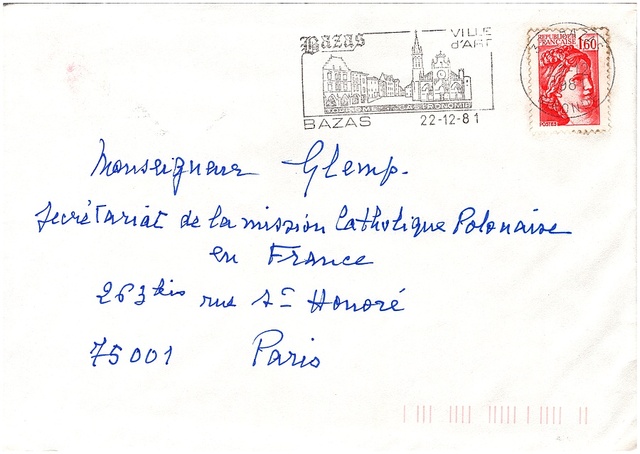 Bazas
VILLE
d'ART
BAZAS 22-12-81
REPUBLIQUE
FRANÇAISE 1,60
POSTES
Monseigneur Glemp.
Secrétariat de la mission Catholique Polonaise
en France
263 bis rue St Honoré
75001 Paris